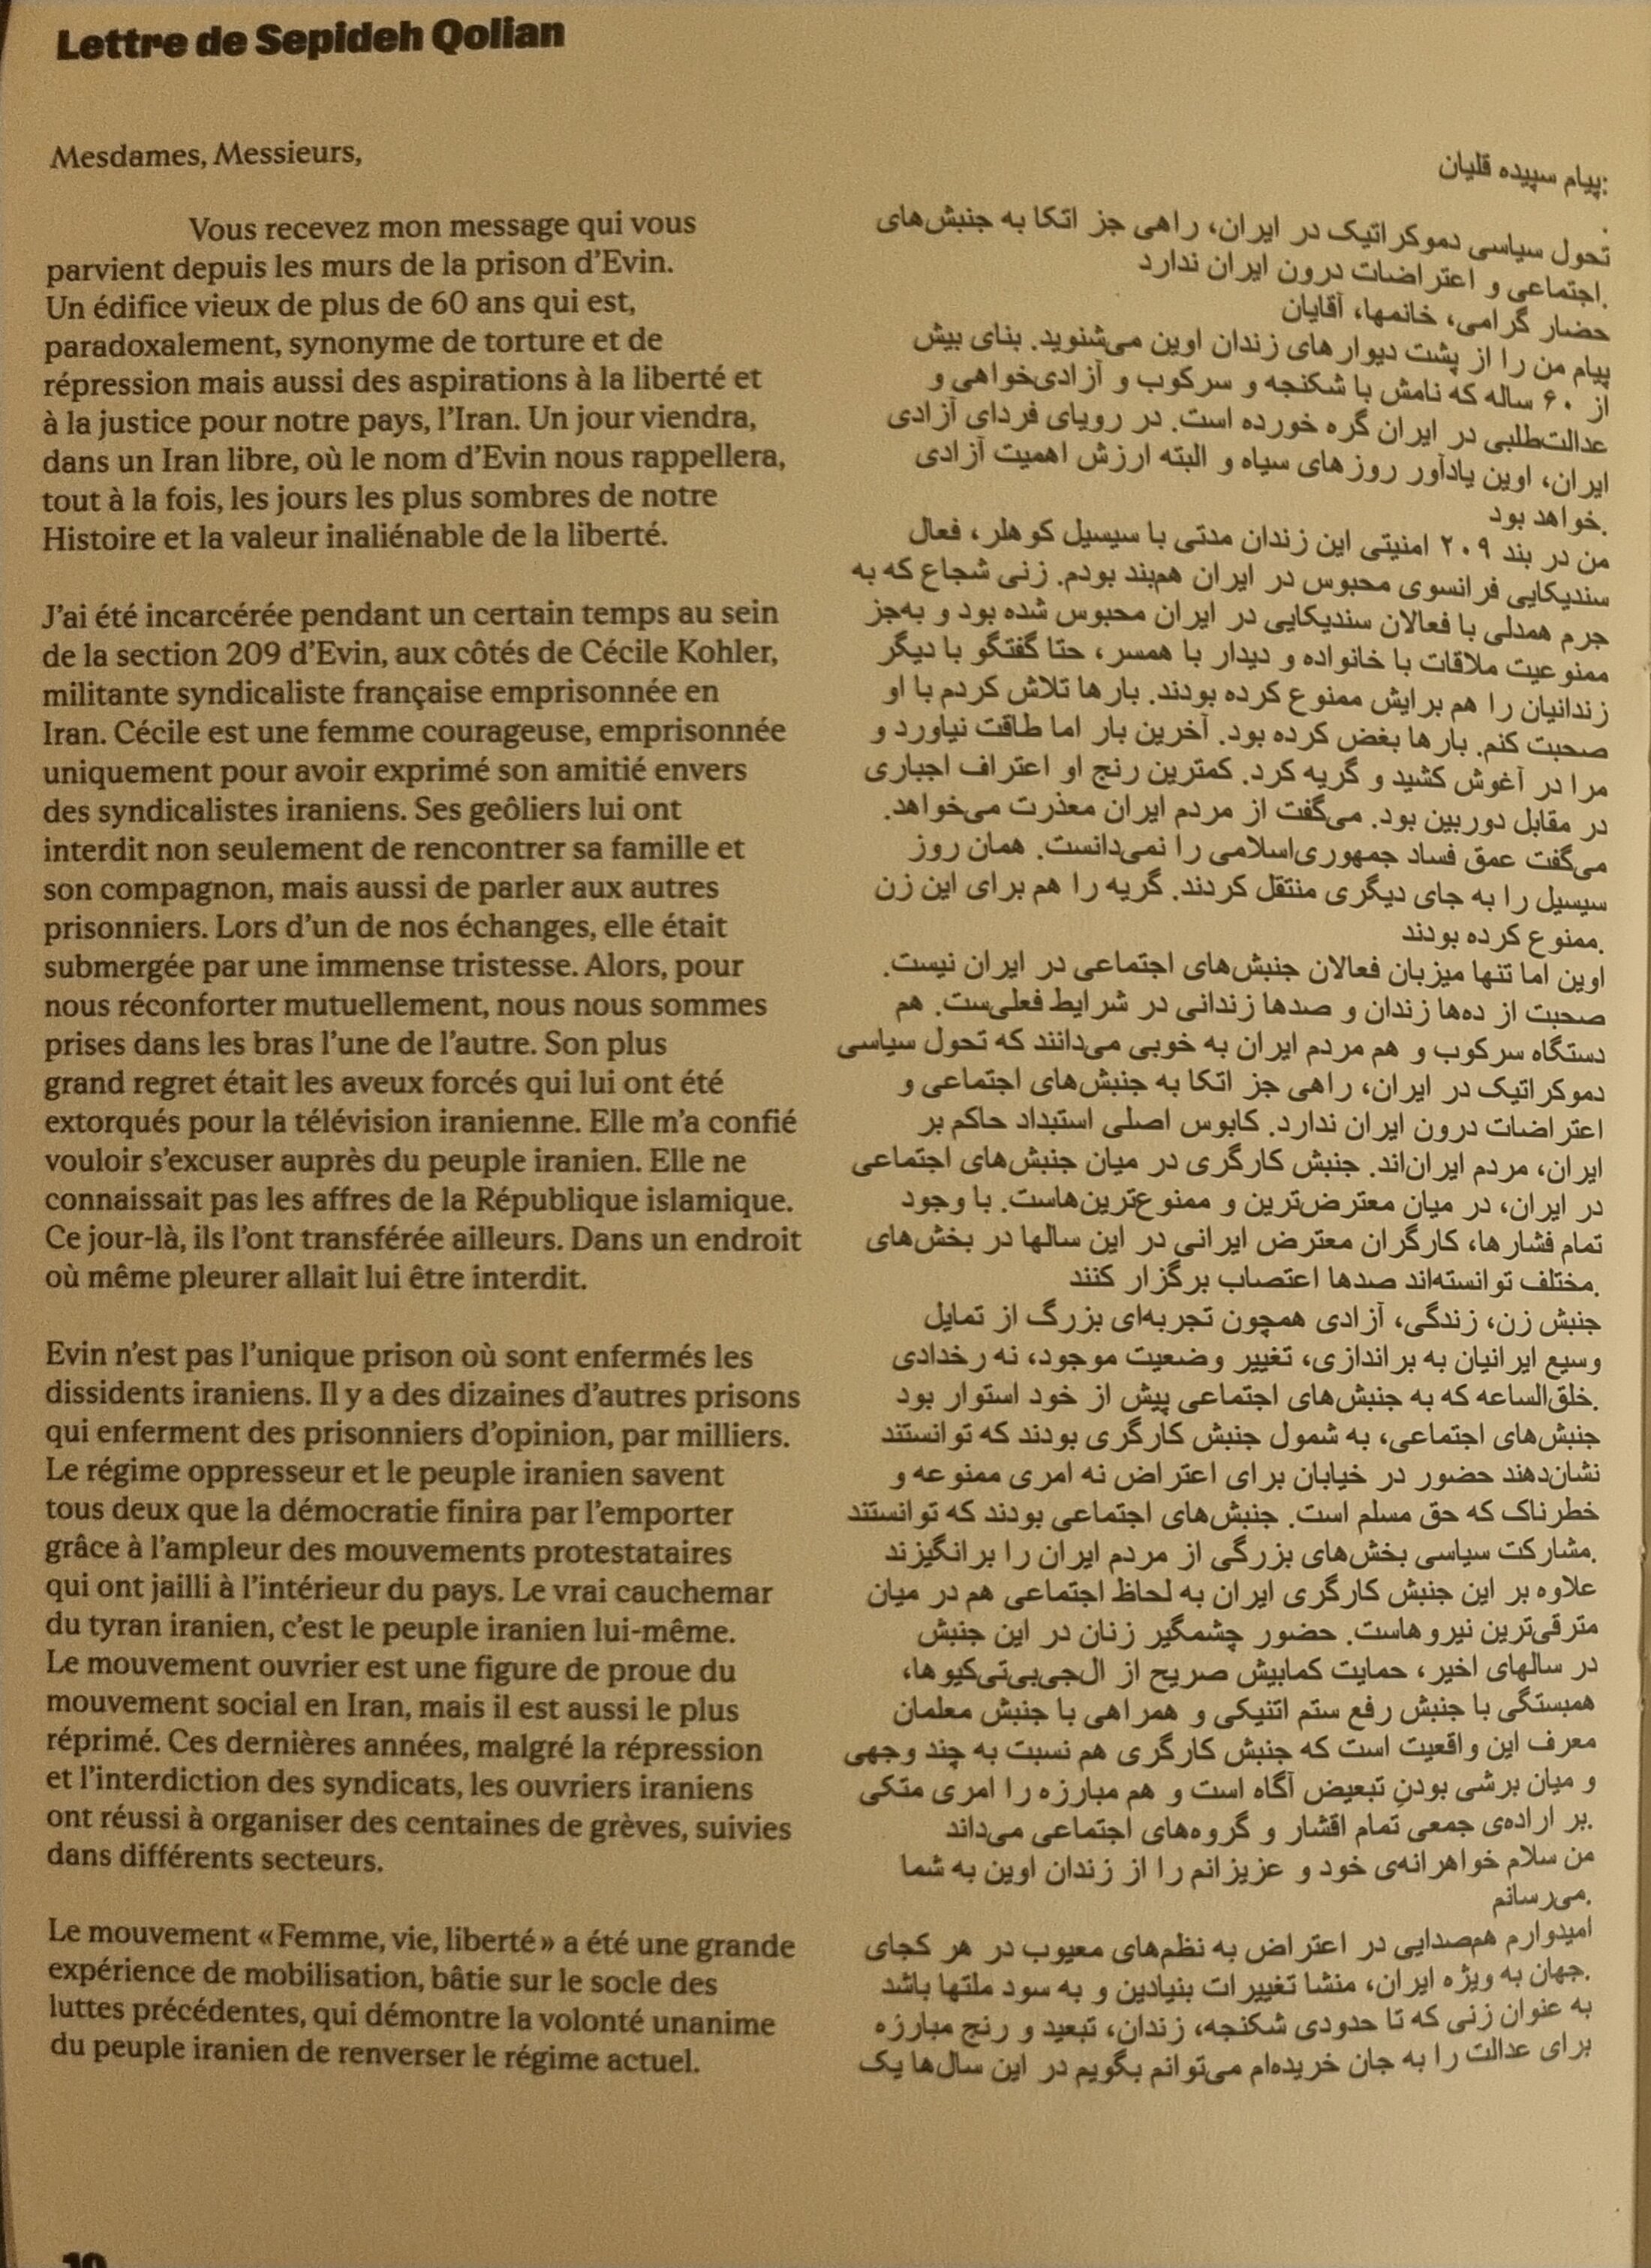 Lettre de Sepideh Qolian
Mesdames, Messieurs,
Vous recevez mon message qui vous
parvient depuis les murs de la prison d'Evin.
Un édifice vieux de plus de 60 ans qui est,
paradoxalement, synonyme de torture et de
répression mais aussi des aspirations à la liberté et
à la justice pour notre pays, l'Iran. Un jour viendra,
dans un Iran libre, où le nom d'Evin nous rappellera,
tout à la fois, les jours les plus sombres de notre
Histoire et la valeur inaliénable de la liberté.
J'ai été incarcérée pendant un certain temps au sein
de la section 209 d'Evin, aux côtés de Cécile Kohler,
militante syndicaliste française emprisonnée en
Iran. Cécile est une femme courageuse, emprisonnée
uniquement pour avoir exprimé son amitié envers
des syndicalistes iraniens. Ses geôliers lui ont
interdit non seulement de rencontrer sa famille et
son compagnon, mais aussi de parler aux autres
prisonniers. Lors d'un de nos échanges, elle était
submergée par une immense tristesse. Alors, pour
nous réconforter mutuellement, nous nous sommes
prises dans les bras l'une de l'autre. Son plus
grand regret était les aveux forcés qui lui ont été
extorqués pour la télévision iranienne. Elle m'a confié
vouloir s'excuser auprès du peuple iranien. Elle ne
connaissait pas les affres de la République islamique.
Ce jour-là, ils l'ont transférée ailleurs. Dans un endroit
où même pleurer allait lui être interdit.
Evin n'est pas l'unique prison où sont enfermés les
dissidents iraniens. Il y a des dizaines d'autres prisons
qui enferment des prisonniers d'opinion, par milliers.
Le régime oppresseur et le peuple iranien savent
tous deux que la démocratie finira par l'emporter
grâce à l'ampleur des mouvements protestataires
qui ont jailli à l'intérieur du pays. Le vrai cauchemar
du tyran iranien, c'est le peuple iranien lui-même.
Le mouvement ouvrier est une figure de proue du
mouvement social en Iran, mais il est aussi le plus
réprimé. Ces dernières années, malgré la répression
et l'interdiction des syndicats, les ouvriers iraniens
ont réussi à organiser des centaines de grèves, suivies
dans différents secteurs.
Le mouvement « Femme, vie, liberté » a été une grande
expérience de mobilisation, bâtie sur le socle des
luttes précédentes, qui démontre la volonté unanime
du peuple iranien de renverser le régime actuel.
پیام سپیده قلیان:
.
تحول سیاسی دموکراتیک در ایران، راهی جز اتکا به جنبش‌های
اجتماعی و اعتراضات درون ایران ندارد.
حضار گرامی، خانمها، آقایان
پیام من را از پشت دیوارهای زندان اوین می‌شنوید. بنای بیش
از ۶۰ ساله که نامش با شکنجه و سرکوب و آزادی‌خواهی و
عدالت‌طلبی در ایران گره خورده است. در رویای فردای آزادی
ایران، اوین یادآور روزهای سیاه و البته ارزش اهمیت آزادی
خواهد بود.
من در بند ۲۰۹ امنیتی این زندان مدتی با سیسیل کوهلر، فعال
سندیکایی فرانسوی محبوس در ایران هم‌بند بودم. زنی شجاع که به
جرم همدلی با فعالان سندیکایی در ایران محبوس شده بود و به‌جز
ممنوعیت ملاقات با خانواده و دیدار با همسر، حتا گفتگو با دیگر
زندانیان را هم برایش ممنوع کرده بودند. بارها تلاش کردم با او
صحبت کنم. بارها بغض کرده بود. آخرین بار اما طاقت نیاورد و
مرا در آغوش کشید و گریه کرد. کمترین رنج او اعتراف اجباری
در مقابل دوربین بود. می‌گفت از مردم ایران معذرت می‌خواهد.
می‌گفت عمق فساد جمهوری‌اسلامی را نمی‌دانست. همان روز
سیسیل را به جای دیگری منتقل کردند. گریه را هم برای این زن
ممنوع کرده بودند.
اوین اما تنها میزبان فعالان جنبش‌های اجتماعی در ایران نیست.
صحبت از ده‌ها زندان و صدها زندانی در شرایط فعلی‌ست. هم
دستگاه سرکوب و هم مردم ایران به خوبی می‌دانند که تحول سیاسی
دموکراتیک در ایران، راهی جز اتکا به جنبش‌های اجتماعی و
اعتراضات درون ایران ندارد. کابوس اصلی استبداد حاکم بر
ایران، مردم ایران‌اند. جنبش کارگری در میان جنبش‌های اجتماعی
در ایران، در میان معترض‌ترین و ممنوع‌ترین‌هاست. با وجود
تمام فشارها، کارگران معترض ایرانی در این سالها در بخش‌های
مختلف توانسته‌اند صدها اعتصاب برگزار کنند.
جنبش زن، زندگی، آزادی همچون تجربه‌ای بزرگ از تمایل
وسیع ایرانیان به براندازی، تغییر وضعیت موجود، نه رخدادی
خلق‌الساعه که به جنبش‌های اجتماعی پیش از خود استوار بود.
جنبش‌های اجتماعی، به شمول جنبش کارگری بودند که توانستند
نشان‌دهند حضور در خیابان برای اعتراض نه امری ممنوعه و
خطرناک که حق مسلم است. جنبش‌های اجتماعی بودند که توانستند
مشارکت سیاسی بخش‌های بزرگی از مردم ایران را برانگیزند.
علاوه بر این جنبش کارگری ایران به لحاظ اجتماعی هم در میان
مترقی‌ترین نیروهاست. حضور چشمگیر زنان در این جنبش
در سالهای اخیر، حمایت کمابیش صریح از ال‌جی‌بی‌تی‌کیوها،
همبستگی با جنبش رفع ستم اتنیکی و همراهی با جنبش معلمان
معرف این واقعیت است که جنبش کارگری هم نسبت به چند وجهی
و میان برشی بودنِ تبعیض آگاه است و هم مبارزه را امری متکی
بر اراده‌ی جمعی تمام اقشار و گروه‌های اجتماعی می‌داند.
من سلام خواهرانه‌ی خود و عزیزانم را از زندان اوین به شما
می‌رسانم.
امیدوارم هم‌صدایی در اعتراض به نظم‌های معیوب در هر کجای
جهان به ویژه ایران، منشا تغییرات بنیادین و به سود ملتها باشد.
به عنوان زنی که تا حدودی شکنجه، زندان، تبعید و رنج مبارزه
برای عدالت را به جان خریده‌ام می‌توانم بگویم در این سال‌ها یک